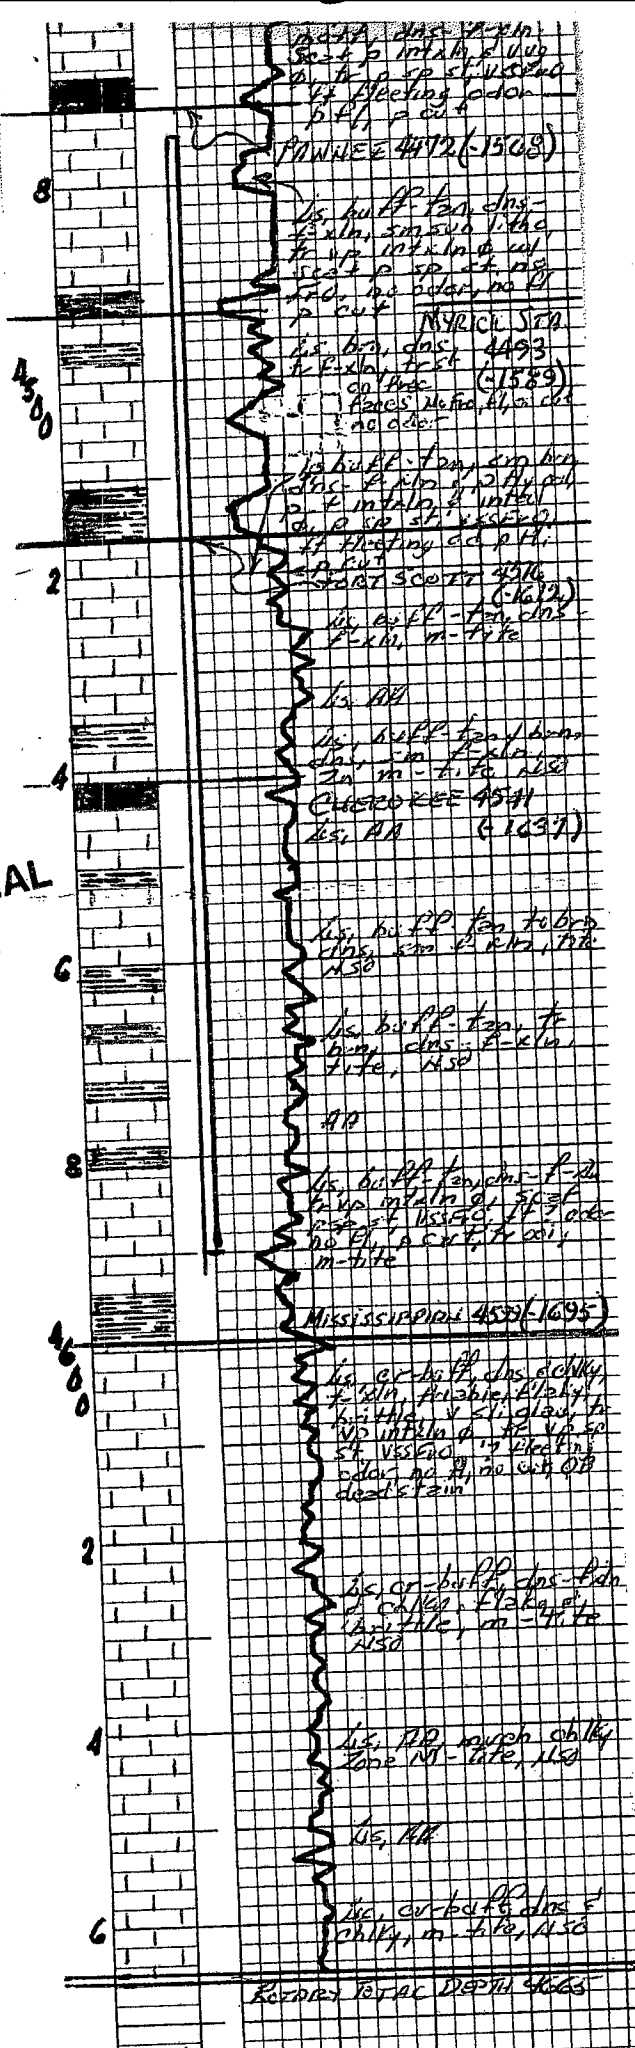 mott, dns-f-xln-
scat p intxln & vug
ø, tr p sp st, VSSFRO
ft fleeting odor
p fl, p cut
PAWNEE 4472 (-1568)
8
Ls, buff-tan, dns-
f-xln, sm sub litho,
tr vp intxln ø w/
scat p sp st, no
FRO, no odor, no fl
p cut
MYRICK STA
Ls brn, dns, 4493
tr f-xln, tr st (-1589)
on frac
faces No Fro, fl, or cut
no odor
4500
Ls buff-tan, sm brn,
dns-f-xln,
p-f intxln &
ø, p sp st, VSSFRO,
ft fleeting od p fl,
p cut
FORT SCOTT 4516
(-1612)
2
Ls, buff-tan, dns-
f-xln, m-tite
Ls, AA
Ls, buff-tan / brn,
dns, sm f-xln,
Zn m-tite, NSO
4
CHEROKEE 4541
Ls, AA (-1637)
AL
Ls, buff tan to brn
dns, sm f-xln, tite
NSO
6
Ls, buff-tan, tr
brn, dns-f-xln,
tite, NSO
AA
8
Ls, buff-tan, dns-f-xln
tr vp intxln ø, scat
p sp st, VSSFRO, ft ? odor
no fl, p cut, tr ooi,
m-tite
MISSISSIPPIAN 4599 (-1695)
4600
Ls, cr-buff, dns & chlky,
f-xln, friable, flaky,
brittle, v sli glau, tr
vp intxln ø tr vp sp
st, VSSFRO, fleeting
odor, no fl, no cut, OR
dead stain
2
Ls, cr-buff, dns-f-xln
& chlky, flakey
brittle, m-tite
NSO
4
Ls, AA, much chlky
Zone M-tite, NSO
Ls, AA
6
Ls, cr-buff, dns &
chlky, m-tite, NSO
ROTARY TOTAL DEPTH 4665